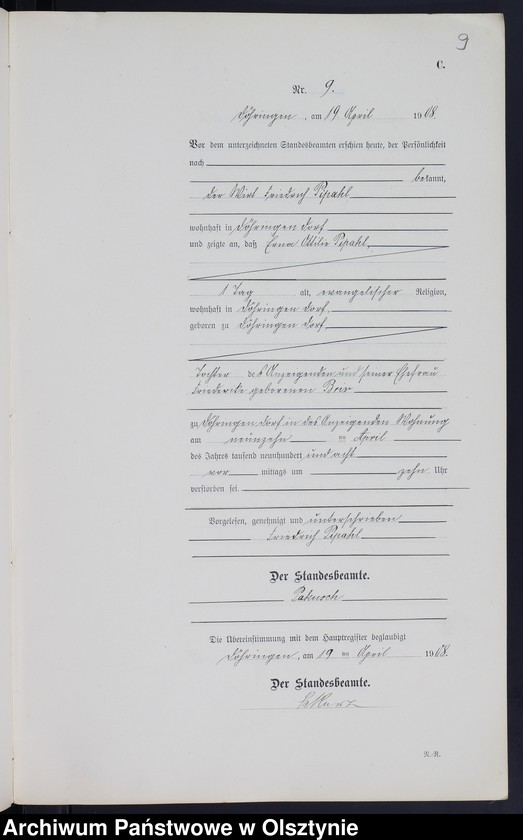 9
C.
Nr. 9.
Döhringen, am 19 April 1908.
Vor dem unterzeichneten Standesbeamten erschien heute, der Persönlichkeit
nach
bekannt,
der Wirt Friedrich Pipahl
wohnhaft in Döhringen Dorf
und zeigte an, daß Erna Ottilie Pipahl,
1 Tag alt, evangelischer Religion,
wohnhaft in Döhringen Dorf,
geboren zu Döhringen Dorf
Tochter des Anzeigenden und seiner Ehefrau
Friedericke geborenen
zu Döhringen Dorf in des Anzeigenden Wohnung
am neunzehn ten April
des Jahres tausend neunhundert und acht
vor mittags um zehn Uhr
verstorben sei.
Vorgelesen, genehmigt und unterschrieben
Friedrich Pipahl
Der Standesbeamte.
Die Übereinstimmung mit dem Hauptregister beglaubigt
Döhringen, am 19 ten April 1908.
Der Standesbeamte.
Archiwum Państwowe w Olsztynie